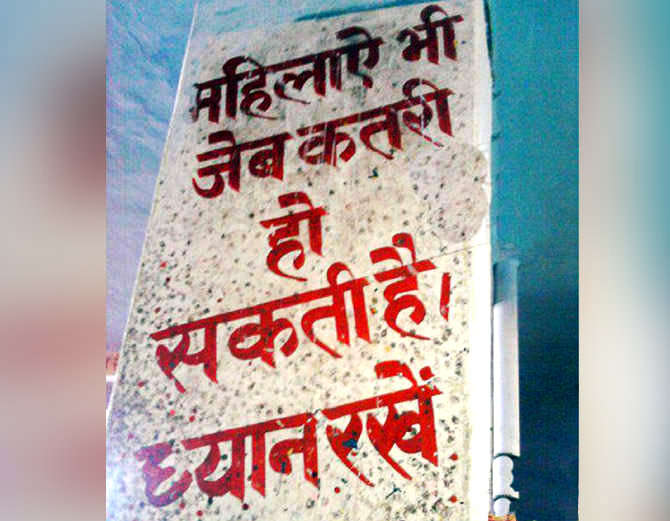 महिलाऐ भी
जेब कतरी
हो
सकती है।
ध्यान रखें